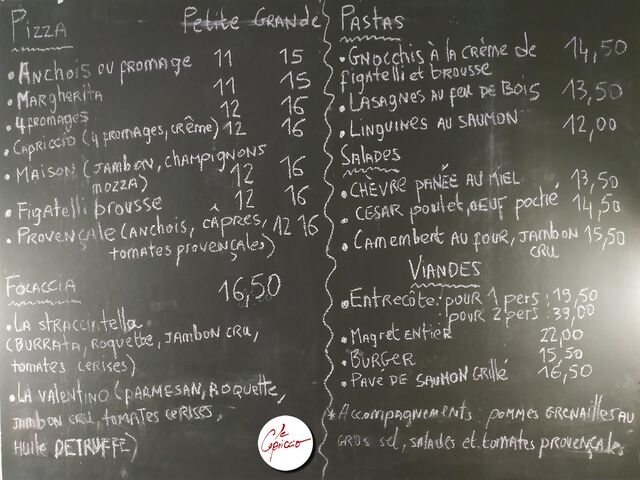 Pizza Petite Grande
• Anchois ou fromage 11 15
• Margherita 11 15
• 4 fromages 12 16
• Capriccio (4 fromages, crême) 12 16
• Maison (Jambon, champignons
mozza) 12 16
• Figatelli brousse 12 16
• Provençale (anchois, câpres, 12 16
tomates provençales)
Focaccia 16,50
• La stracciatella
(Burrata, roquette, jambon cru,
tomates cerises)
• La Valentino (Parmesan, roquette,
jambon cru, tomates cerises,
huile de truffe)
Le Capriccio
Pastas
• Gnocchis à la crème de 14,50
figatelli et brousse
• Lasagnes au feu de bois 13,50
• Linguines au saumon 12,00
Salades
• Chèvre panée au miel 13,50
• César poulet, oeuf poché 14,50
• Camembert au four, jambon 15,50
cru
Viandes
• Entrecôte: pour 1 pers : 19,50
pour 2 pers : 39,00
• Magret entier 22,00
• Burger 15,50
• Pave de saumon grillé 16,50
* Accompagnements : pommes grenailles au
gros sel, salades et tomates provençales